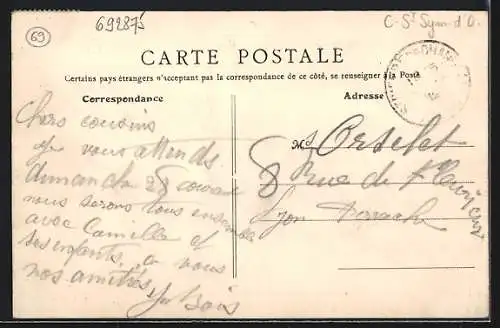 69287S
C-St Sym. d'O.
69
CARTE POSTALE
Certains pays étrangers n'acceptant pas la correspondance de ce côté, se renseigner à la Poste
Correspondance
Adresse
Chers cousins
Je vous attends
dimanche 28 courant
nous serons tous ensemble
avec Camille et
ses enfants.
nos amitiés
Bois
M.
8 Rue de
Lyon Perrache